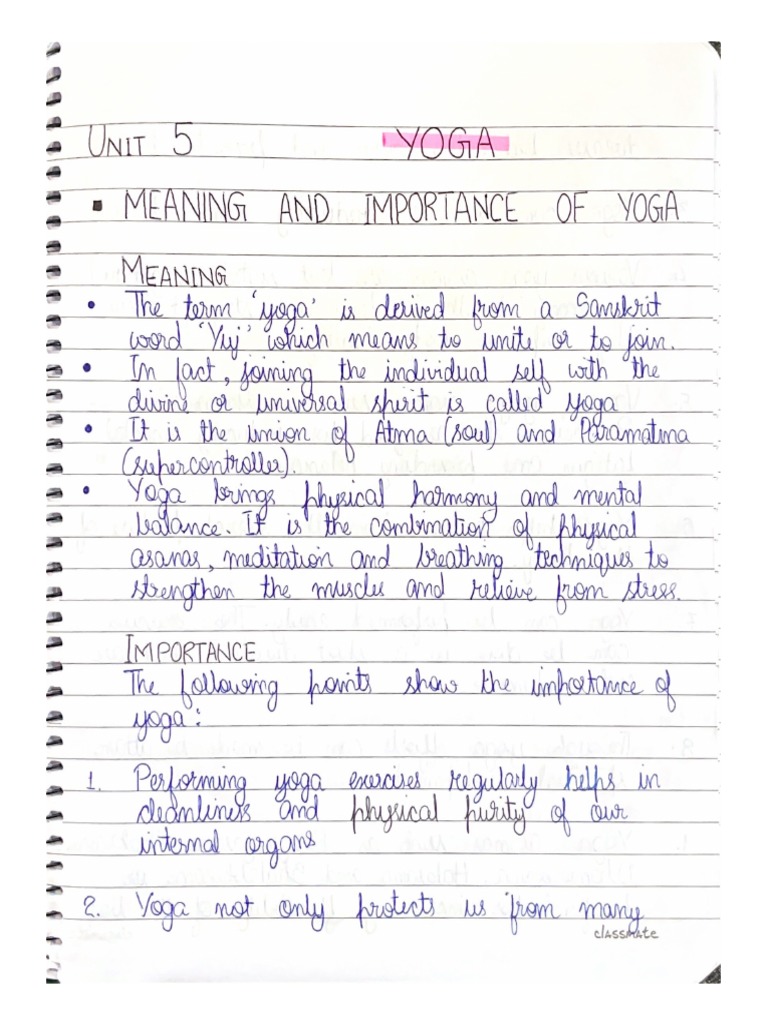 UNIT 5 YOGA
▪ MEANING AND IMPORTANCE OF YOGA
MEANING
• The term 'yoga' is derived from a Sanskrit
word 'Yuj' which means to unite or to join.
• In fact, joining the individual self with the
divine or universal spirit is called yoga
• It is the union of Atma (soul) and Paramatma
(supercontroller).
• Yoga brings physical harmony and mental
balance. It is the combination of physical
asanas, meditation and breathing techniques to
strengthen the muscles and relieve from stress.
IMPORTANCE
The following points show the importance of
yoga:
1. Performing yoga exercises regularly helps in
cleanliness and physical purity of our
internal organs
2. Yoga not only protects us from many
classmate